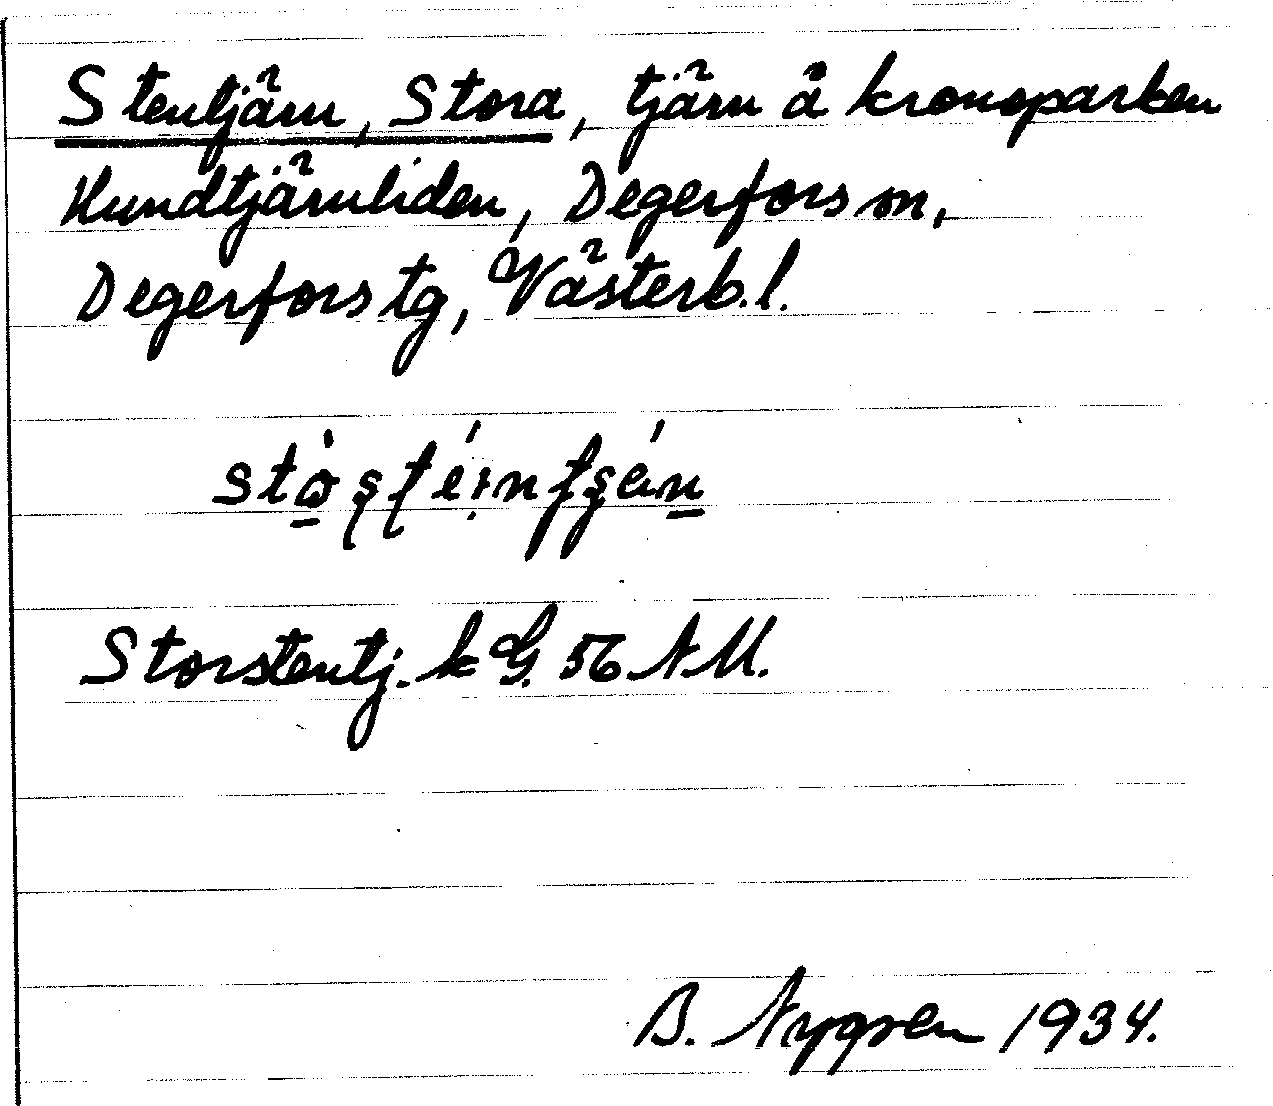 Stentjärn, Stora, tjärn å kronoparken
Hundtjärnliden, Degerfors sn,
Degerfors tg, Västerb. l.
Storstentj. k G. 56 AM.
B. Nygren 1934.